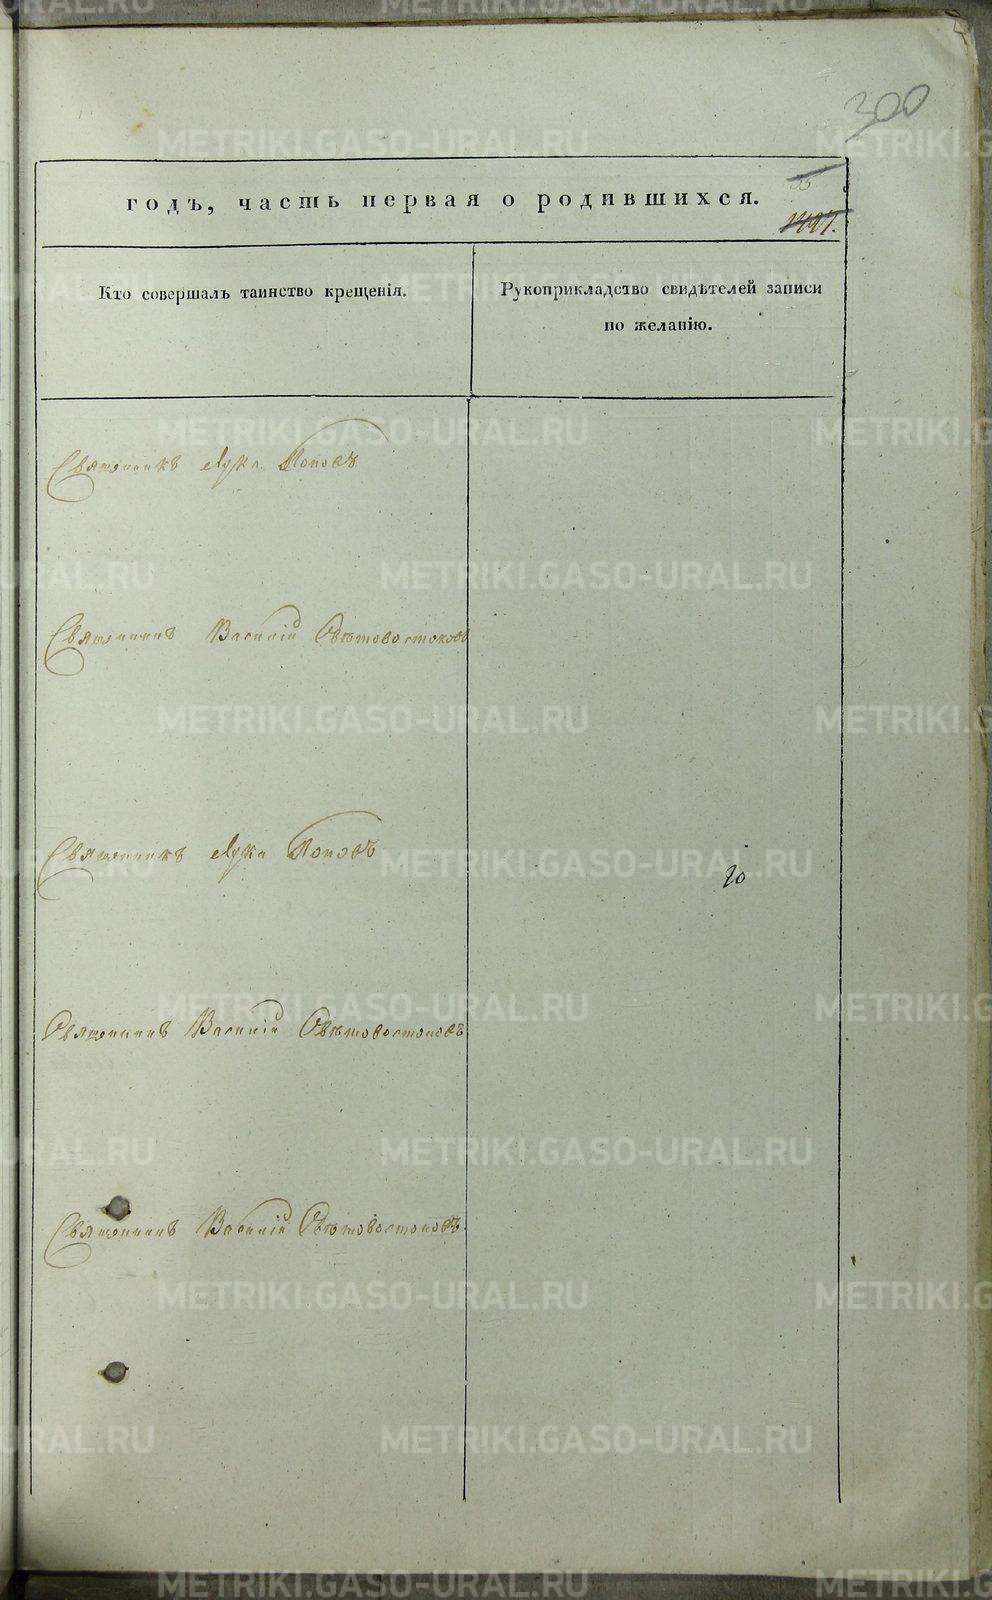 300
55
годъ, часть первая о родившихся.
1427.
Кто совершалъ таинство крещенія.
Рукоприкладство свидѣтелей записи
по желанію.
Священникъ Лука Поповъ
Священникъ Василій Свѣтовостоковъ
Священникъ Лука Поповъ
20
Священникъ Василій Свѣтовостоковъ
Священникъ Василій Свѣтовостоковъ.
METRIKI.GASO-URAL.RU